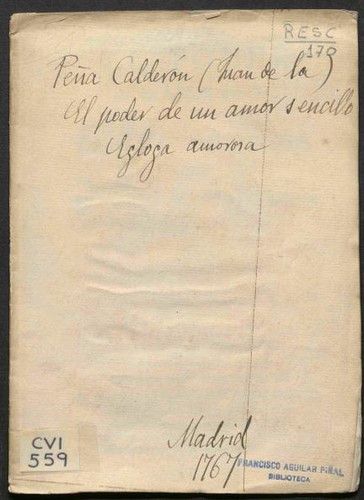 RESC
170
Peña Calderón (Juan de la)
El poder de un amor sencillo
Egloga amorosa
Madrid
1767
CVI
559
FRANCISCO AGUILAR PIÑAL
BIBLIOTECA